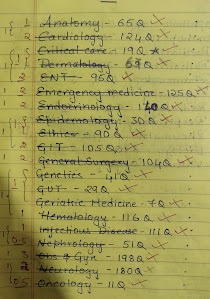 1 Anatomy - 65Q
2 Cardiology - 124Q
1 Critical care - 19Q
1 Dermatology - 69Q
2 ENT - 95Q
2 Emergency medicine - 125Q
2 Endocrinology - 140Q
1 Epidemiology - 30Q
1 Ethics - 90Q
2 GIT - 105Q
2 General Surgery - 104Q
1 Genetics - 41Q
1 GUT - 29Q
Geriatric Medicine - 7Q
1 Hematology - 116Q
1 Infectious Disease - 111Q
0.5 Nephrology - 51Q
3 Obs & Gyn - 198Q
2 Neurology - 180Q
0.5 Oncology - 11Q